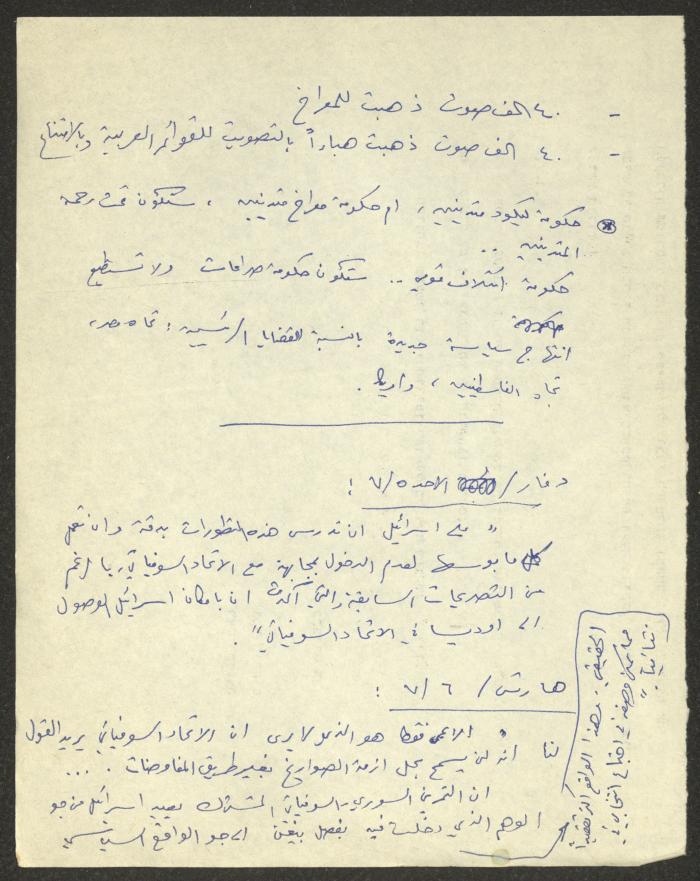 - ٤٠ الف صوت ذهبت للمعراخ
- ٤٠ الف صوت ذهبت هباراً بالتصويت للقوائم العربية وبالامتناع
حكومة ليكود متدينين، ام حكومة معراخ متدينين، ستكون تحت رحمة
المتدينين ..
حكومة ائتلاف قومي .. ستكون حكومة صراعات ولا تستطيع
انتهاج سياسة جديدة بالنسبة للقضايا الرئيسية: تجاه مصر،
تجاه الفلسطينيين، واوروبا.
دفار / الاحد ٧/٥ :
" على اسرائيل ان تدرس هذه التطورات بدقة وان تعمل
كل ما بوسعها لعدم الدخول بمجابهة مع الاتحاد السوفياتي، بالرغم
من التصريحات السابقة والتي أكدت ان بامكان اسرائيل الوصول
الى اوديسا في الاتحاد السوفياتي".
هآرتس / ٧/٦ :
" الاعمى فقط هو الذي لا يرى ان الاتحاد السوفياتي يريد القول
لنا انه لن يسمح بحل ازمة الصواريخ بغير طريق المفاوضات . ...
ان التمرين السوري - السوفياتي المشترك يعيد اسرائيل من جو
الوهم الذي دخلت فيه بفضل بيغن الى جو الواقع السياسي
الحقيقي، وهذا الواقع